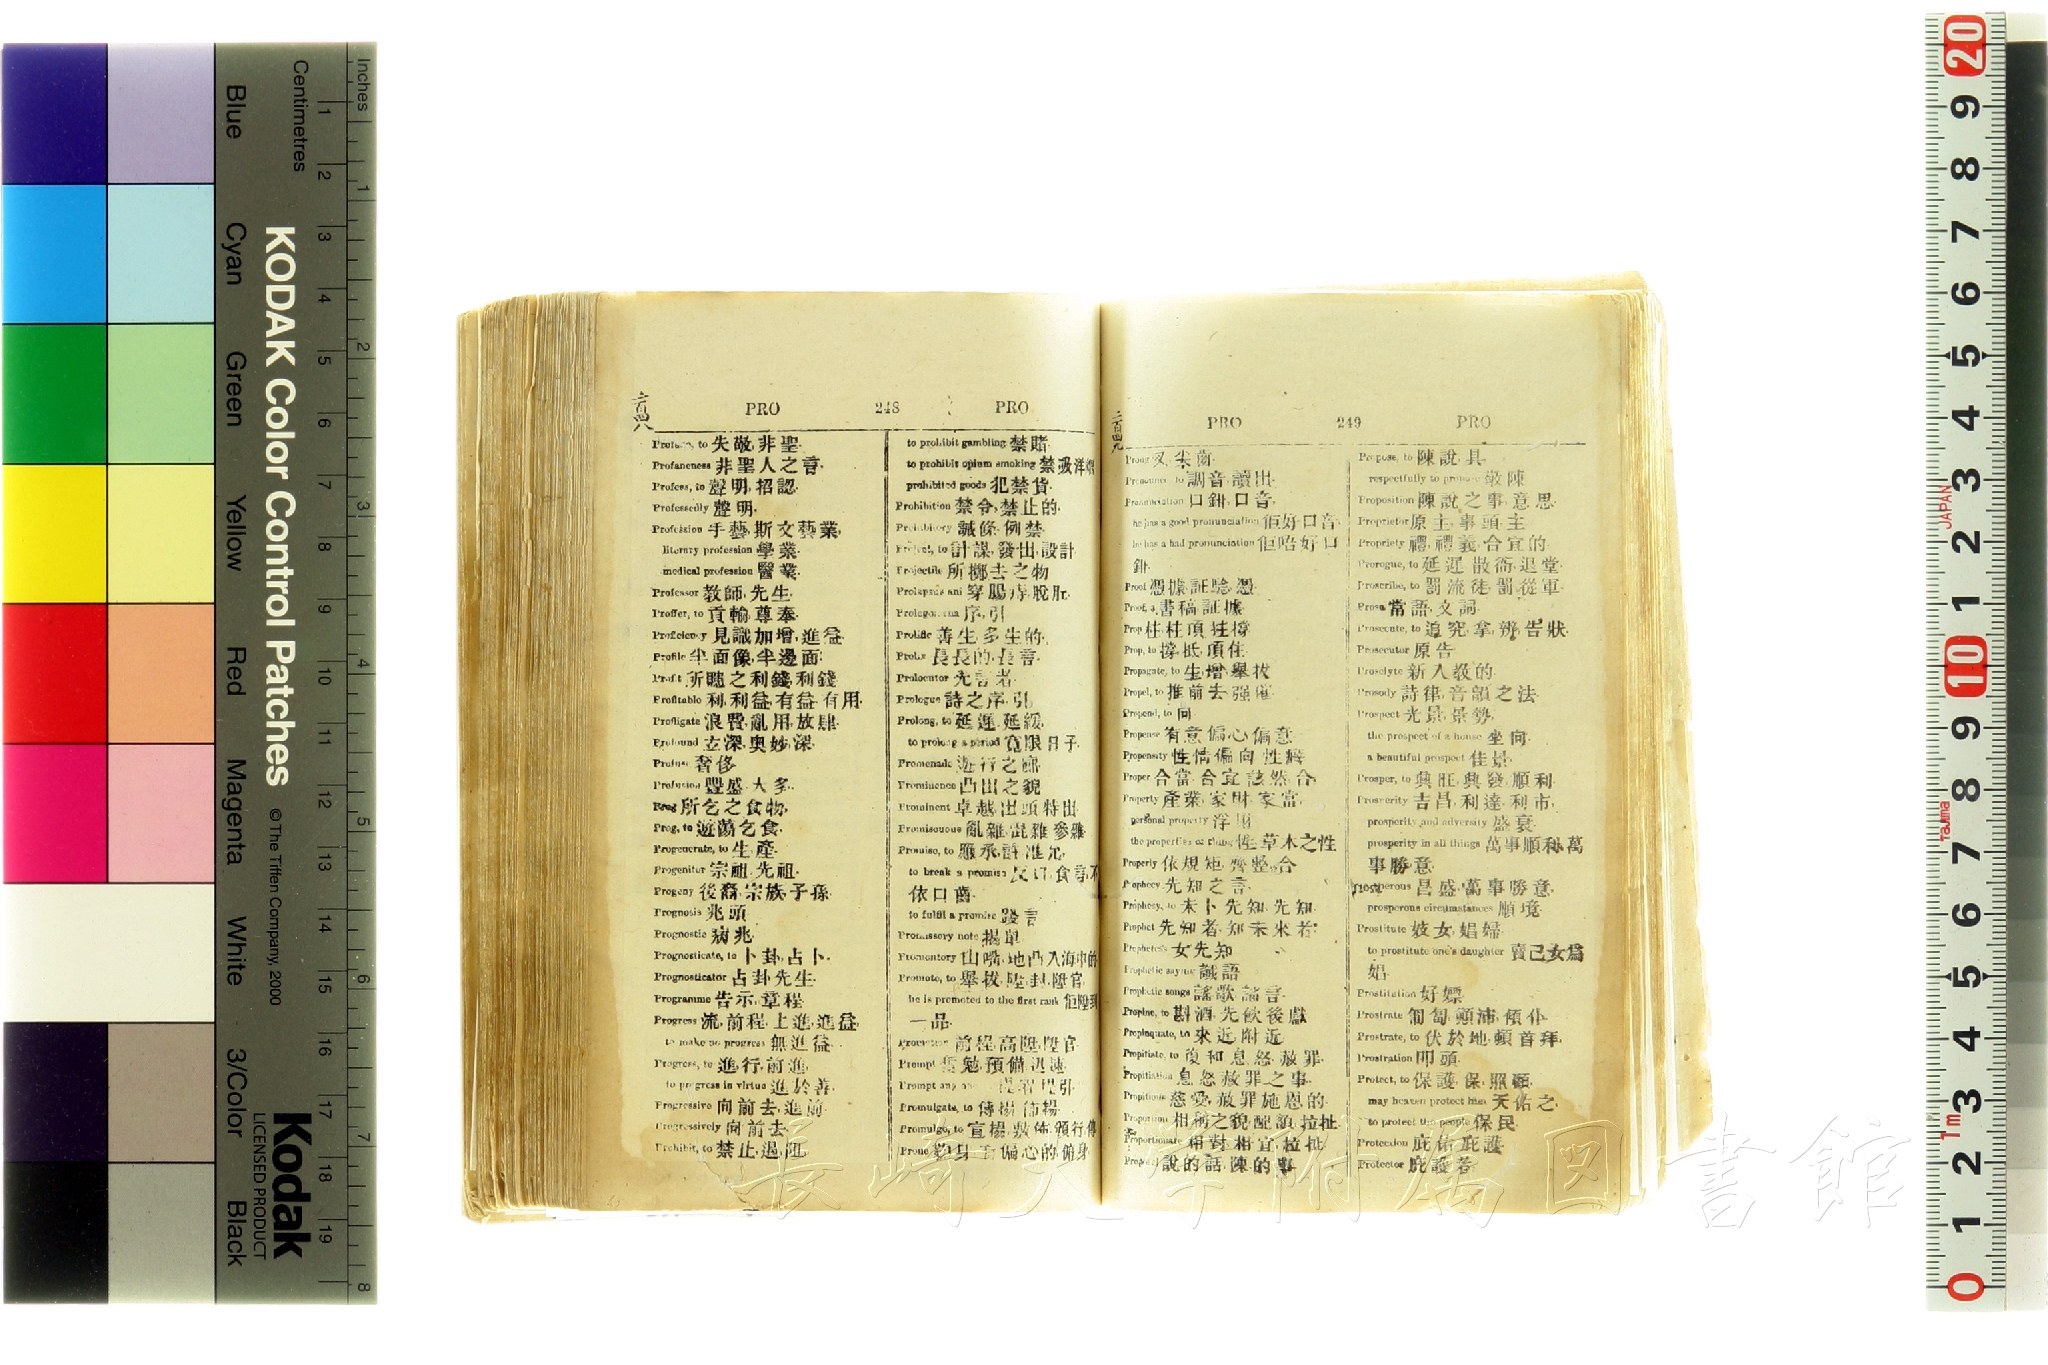 Inches
Centimetres
KODAK Color Control Patches
© The Tiffen Company, 2000
Kodak
LICENSED PRODUCT
Blue
Cyan
Green
Yellow
Red
Magenta
White
3/Color
Black
二百四八
PRO 248 PRO
失敬,非聖
Profaneness 非聖人之言
Profess, to 聲明,招認
Professedly 聲明
Profession 手藝,斯文藝業
literary profession 學業
medical profession 醫業
Professor 教師,先生
Proffer, to 貢輸,尊奉
Proficiency 見識加增,進益
Profile 半面像,半邊面
Profit 所賺之利錢,利錢
Profitable 利,利益,有益,有用
Profligate 浪費,亂用,放肆
Profound 玄深,奧妙,深
奢侈
Profusion 豐盛,大多
Prog 所乞之食物
Prog, to 遊蕩乞食
Progenerate, to 生產
Progenitor 宗祖,先祖
Progeny 後裔,宗族,子孫
Prognosis 兆頭
Prognostic 病兆
Prognosticate, to 卜卦,占卜
Prognosticator 占卦先生
Programme 告示,章程
Progress 流,前程,上進,進益
to make no progress 無進益
Progress, to 進行,前進
to progress in virtue 進於善
Progressive 向前去,進前
Progressively 向前去
Prohibit, to 禁止,遏阻
to prohibit gambling 禁賭
to prohibit opium smoking 禁吸洋烟
prohibited goods 犯禁貨
Prohibition 禁令,禁止的
Prohibitory 誡條,例禁
Project, to 計謀,發出,設計
Projectile 所擲去之物
Prolapsus ani 穿腸痔,脫肛
Prolegomena 序,引
Prolific 善生,多生的
Prolix 長長的,長言
Prolocutor 先言者
Prologue 詩之序,引
Prolong, to 延遲,延緩
to prolong a period 寬限日子
Promenade 遊行之廊
Prominence 凸出之貌
Prominent 卓越,出頭,特出
Promiscuous 亂雜,混雜,參雜
Promise, to 應承,許,准允
to break a promise 反口,食言,不
依口齒
to fulfil a promise 踐言
Promissory note 揭單
Promontory 山嘴,地凸入海中的
Promote, to 舉拔,陞封,陞官
he is promoted to the first rank 佢陞到
一品
Promotion 前程高陞,陞官
Prompt 勉,預備,迅速
Promulgate, to 傳揚,佈揚
Promulge, to 宣揚,敷佈,頒行,傳
偏心的,俯身
二百四九
PRO 249 PRO
叉,尖齒
Pronounce, to 調音,讀出
Pronunciation 口鉗,口音
he has a good pronunciation 佢好口音
he has a bad pronunciation 佢唔好口
鉗
Proof 憑據,証驗,憑
Proof, a 書稿,証據
Prop 柱,柱頂,拄撐
Prop, to 撐抵,頂住
Propagate, to 生,增,舉拔
Propel, to 推前去,强催
Propend, to 向
Propense 有意,偏心,偏意
Propensity 性情,偏向,性癖
Proper 合當,合宜,該然,合
Property 產業,家財,家富
personal property 浮
the properties of plants 性,草木之性
Properly 依規矩,齊整,合
Prophecy 先知之言
Prophecy, to 未卜先知,先知
Prophet 先知者,知未來者
Prophetess 女先知
讖語
Prophetic songs 謠歌,諸言
Propine, to 斟酒,先飲後獻
Propinquate, to 來近,附近
Propitiate, to 復和,息怒,赦罪
Propitiation 息怒赦罪之事
Propitious 慈愛,赦罪施恩的
Proportion 相稱之貌,配,拉扯
Proportionate 相對,相宜,拉扯
說的話,陳的事
Propose, to 陳說,具
respectfully to propose 敬陳
Proposition 陳說之事,意思
Proprietor 原主,事頭,主
Propriety 禮,禮義,合宜的
Prorogue, to 延遲,散衙,退堂
Proscribe, to 罰流徒,罰從軍
Prose 常語,文詞
Prosecute, to 追究,拿辨,告狀
Prosecutor 原告
Proselyte 新入教的
Prosody 詩律,音韻之法
Prospect 光景,景勢
the prospect of a house 坐向
a beautiful prospect 佳景
Prosper, to 興旺,興發,順利
Prosperity 吉昌,利達,利市
prosperity and adversity 盛衰
prosperity in all things 萬事順利,萬
事勝意
Prosperous 昌盛,萬事勝意
prosperous circumstances 順境
Prostitute 妓女,娼婦
to prostitute one's daughter 賣己女爲
娼
Prostitution 好嫖
Prostrate 匍匐,顛沛,傾仆
Prostrate, to 伏於地,頓首拜
Prostration 叩頭
Protect, to 保護,保,照顧
may heaven protect him 天佑之
to protect the people 保民
Protection 庇佑,庇護
Protector 庇護者
長崎大学附属図書館
JAPAN
Tajima
1m